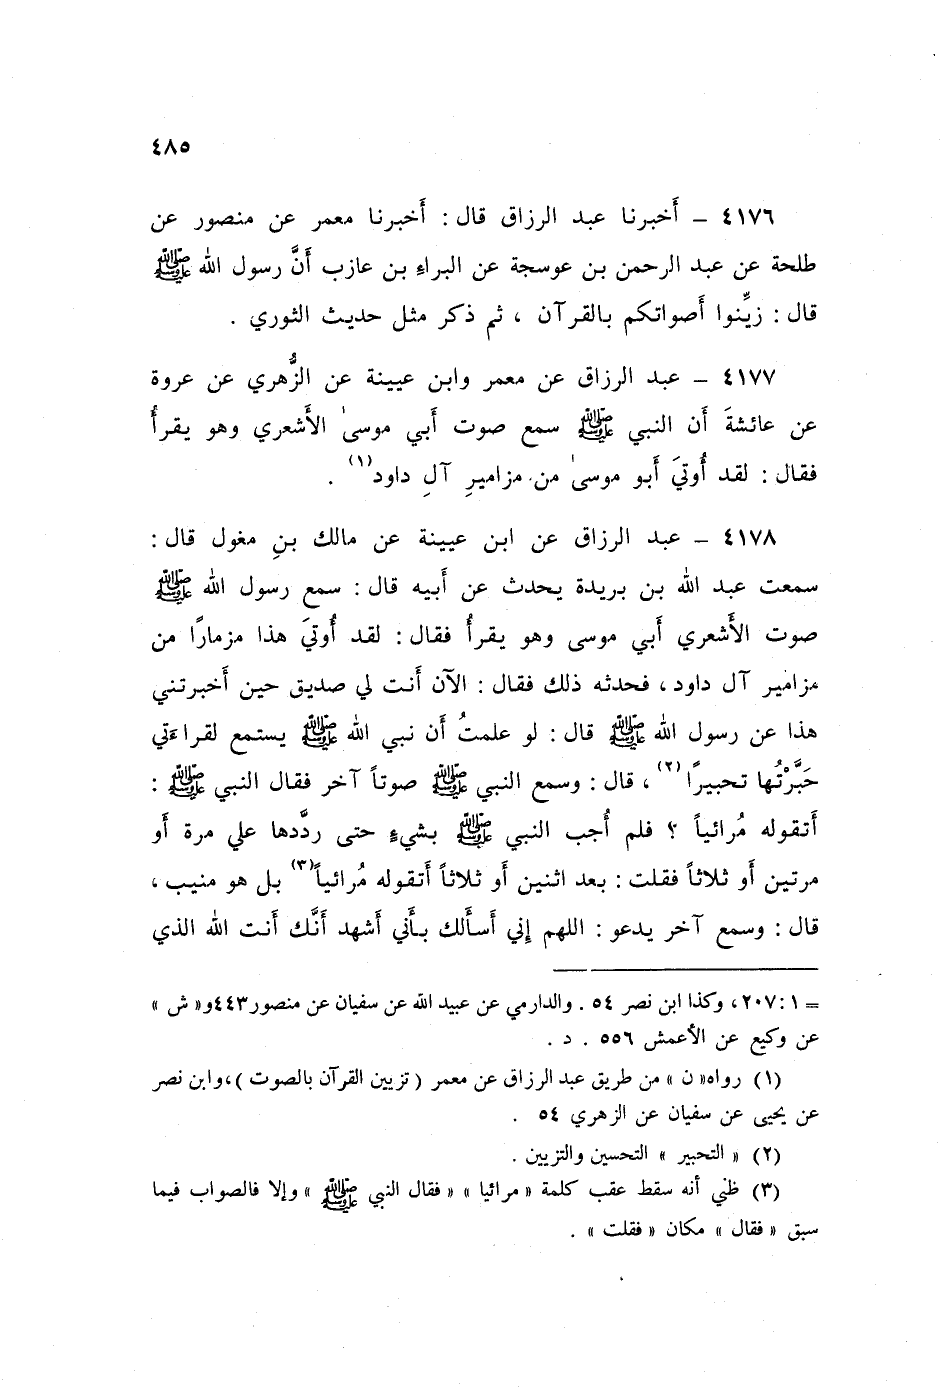 ٤٨٥
٤١٧٦ ـ أَخبرنا عبد الرزاق قال : أَخبرنا معمر عن منصور عن
طلحة عن عبد الرحمن بن عوسجة عن البراءِ بن عازب أَنَّ رسول الله ﷺ
قال : زيِّنوا أَصواتكم بالقرآن ، ثم ذكر مثل حديث الثوري .
٤١٧٧ ـ عبد الرزاق عن معمر وابن عيينة عن الزُّهري عن عروة
عن عائشةَ أَن النبي ﷺ سمع صوت أَبي موسىٰ الأَشعري وهو يقرأُ
فقال : لقد أُوتيَ أَبو موسىٰ من مزاميرِ آلِ داود(١) .
٤١٧٨ ـ عبد الرزاق عن ابن عيينة عن مالك بنِ مغول قال :
سمعت عبد الله بن بريدة يحدث عن أَبيه قال : سمع رسول الله ﷺ
صوت الأَشعري أَبي موسى وهو يقرأُ فقال : لقد أُوتيَ هذا مزمارًا من
مزامير آل داود ، فحدثه ذلك فقال : الآن أَنت لي صديق حين أَخبرتني
هذا عن رسول الله ﷺ قال : لو علمتُ أَن نبي الله ﷺ يستمع لقراءتي
حَبَّرْتُها تحبيرًا(٢) ، قال : وسمع النبي ﷺ صوتاً آخر فقال النبي ﷺ :
أَتقوله مُرائياً ؟ فلم أُجب النبي ﷺ بشيءٍ حتى ردَّدها علي مرة أَو
مرتين أَو ثلاثاً فقلت : بعد اثنين أَو ثلاثاً أَتقوله مُرائياً(٣) بل هو منيب ،
قال : وسمع آخر يدعو : اللهم إِني أَسأَلك بأَني أَشهد أَنَّك أَنت الله الذي
= ١ : ٢٠٧ ، وكذا ابن نصر ٥٤ . والدارمي عن عبيد الله عن سفيان عن منصور ٤٤٣ و« ش »
عن وكيع عن الأعمش ٥٥٦ . د .
(١) رواه« ن » من طريق عبد الرزاق عن معمر ( تزيين القرآن بالصوت )،وابن نصر
عن يحيى عن سفيان عن الزهري ٥٤ .
(٢) « التحبير » التحسين والتزيين .
(٣) ظني أنه سقط عقب كلمة « مرائيا » « فقال النبي ﷺ » وإلا فالصواب فيما
سبق « فقال » مكان « فقلت » .